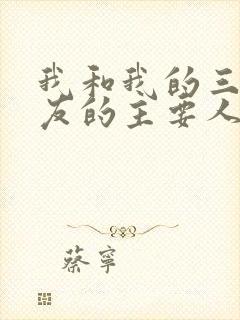 我和我的三
友的主要人
蔡寧